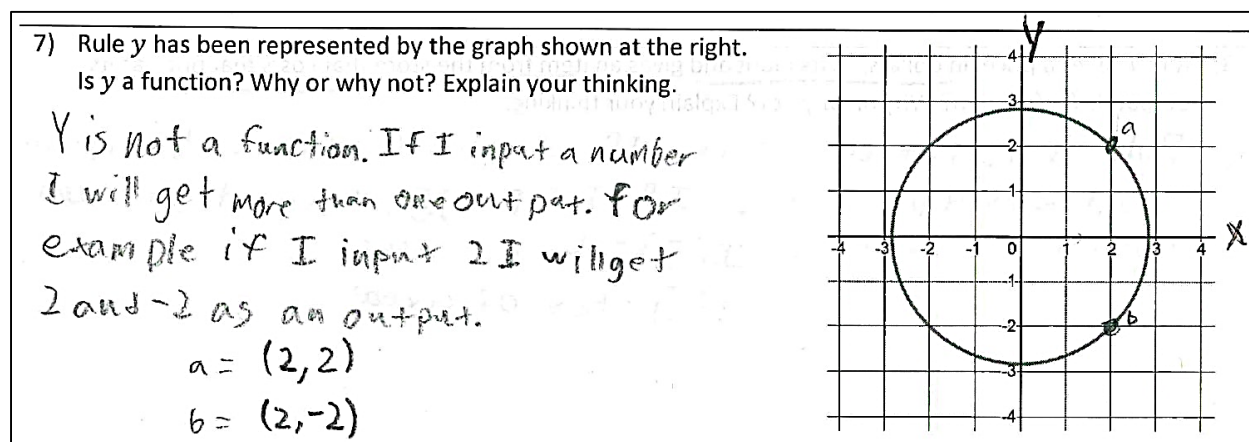 7) Rule y has been represented by the graph shown at the right.
Is y a function? Why or why not? Explain your thinking.
Y is not a function. If I input a number
I will get more than one output. for
example if I input 2 I will get
2 and -2 as an output.
a = (2,2)
b = (2,-2)
Y
4
3
a
2
1
-4 -3 -2 -1 0 1 2 3 4 X
-1
-2 b
-3
-4